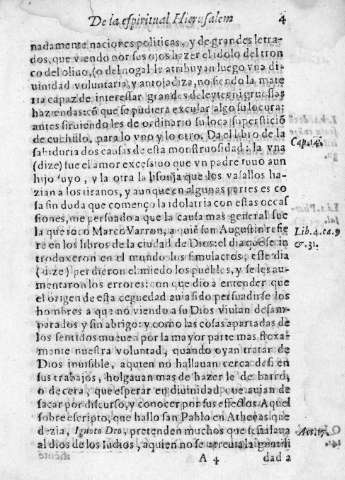 De la espiritual Hierusalem 4
nadamente naciones politicas, y de grandes letra-
dos, que viendo por sus ojos hazer el idolo del tron
co del oliuo, (o del nogal) le atribuyan luego vna di
uinidad voluntaria, y antojadiza, no siendo la mate
ria capaz de interessar grandes deleytes, ni gruessas
haziendas: cõ que se pudiera excusar algo su locura:
antes siruiendoles de ordinario su loca supersticiõ
de cuchillo, para lo vno y lo otro. Da el libro de la
sabiduria dos causas desta monstruosidad: la vna
(dize) fue el amor excessiuo que vn padre tuuo a vn
hijo suyo, y la otra la lisonja que los vasallos ha-
zian a los tiranos, y aunque en algunas partes es co
sa sin duda que començo la idolatria con estas occa
siones, me persuado a que la causa mas general fue
la que toco Marco Varron, a quien san Augustin refie
re en los libros de la ciudad de Dios: el dia que se in
troduxeron en el mundo los simulacros, este dia
(dize) perdieron el miedo los pueblos, y se les au-
mentaron los errores: con que dio a entender que
el origen desta ceguedad auia sido persuadirse los
hombres a que no viendo a su Dios viuian desam-
parados y sin abrigo: y como las cosas apartadas de
los sentidos mueuen por la mayor parte mas floxa-
mente nuestra voluntad, quando oyan tratar de
Dios inuisible, a quien no hallauan cerca de si en
sus trabajos, holgauan mas de hazerle de barro,
o de cera, que esperar en diuinidad, que auian de
sacar por discurso, y conocer por sus effectos. Aquel
sobreescripto, que hallo san Pablo en Athenas que
dezia, Ignoto Deo, pretenden muchos que señalaua
al dios de los Iudios, a quien no se atreuia la gentili
A 4 dad a
Lib. 4. ca. 9
& 31.